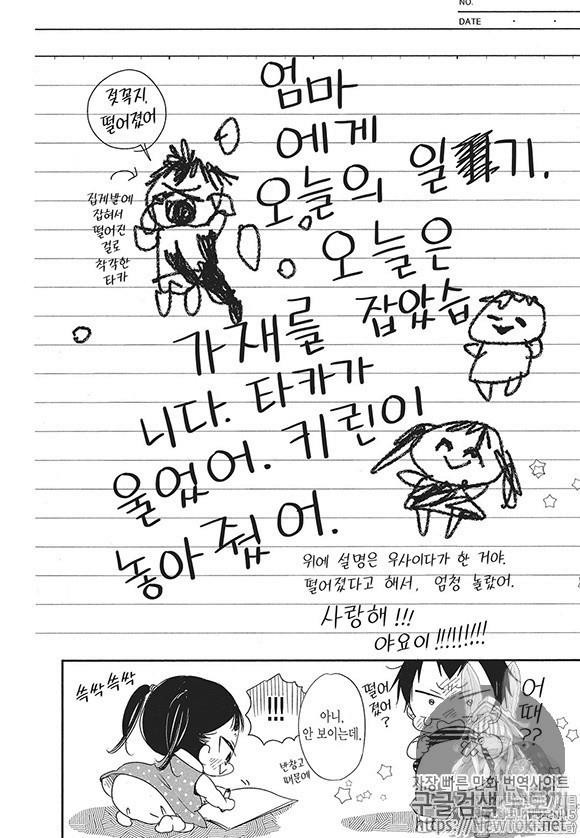 NO.
DATE
젖꼭지.
떨어졌어
집게발에
잡혀서
떨어진
걸로
착각한
타카
엄마
에게
오늘의 일기.
오늘은
가재를 잡았습
니다. 타카가
울었어. 키린이
놓아줬어.
위에 설명은 우사이다가 한 거야.
떨어졌다고 해서, 엄청 놀랐어.
사랑해!!!
야요이!!!!!!!!!
어
때??
떨어
졌어?
아니.
안 보이는데.
반창고
때문에
!!!
쓱싹쓱싹
가장 빠른 만화 번역사이트
구글검색 뉴토끼